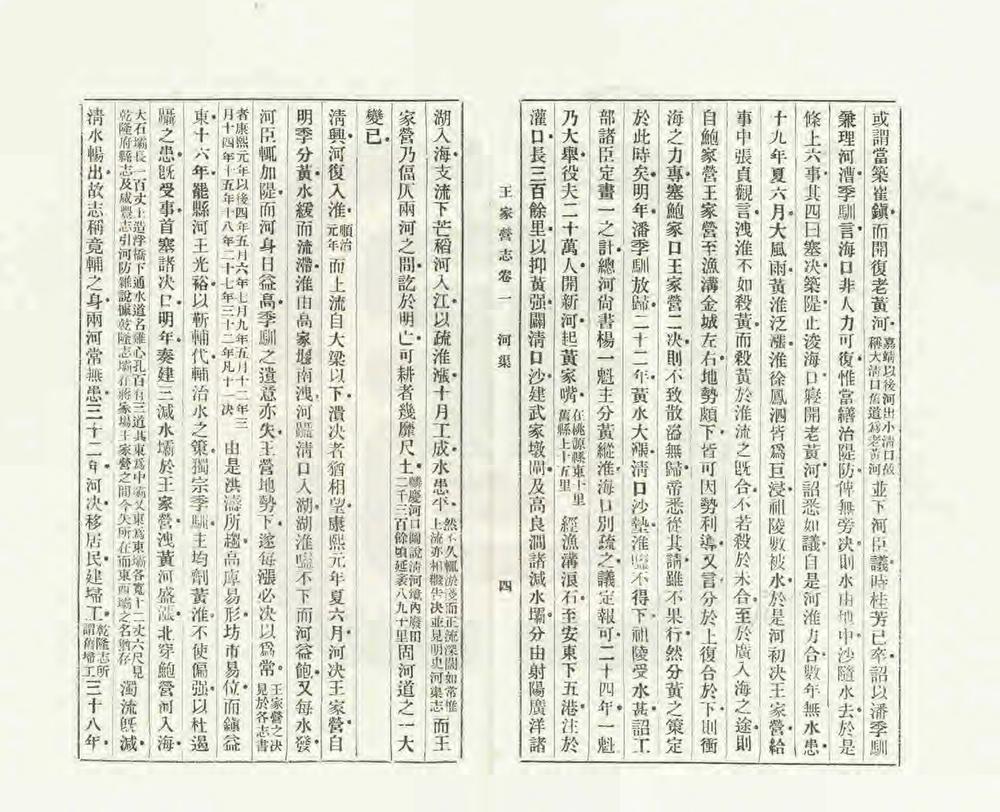 或謂當築崔鎮而開復老黃河嘉靖以後河出小清口故稱大清口舊道爲老黃河並下河臣議時桂芳已卒詔以潘季馴
兼理河漕季馴言海口非人力可復惟當繕治隄防俾無旁决則水由地中沙隨水去於是
條上六事其四曰塞决築隄止浚海口寢開老黃河詔悉如議自是河淮力合數年無水患
十九年夏六月大風雨黃淮泛漲淮徐鳳泗皆爲巨浸祖陵數被水於是河初决王家營給
事中張貞觀言洩淮不如殺黃而殺黃於淮流之既合不若殺於未合至於廣入海之途則
自鮑家營王家營至漁溝金城左右地勢頗下皆可因勢利導又言分於上復合於下則衝
海之力專塞鮑家口王家營二决則不致散溢無歸帝悉從其請雖不果行然分黃之策定
於此時矣明年潘季馴放歸二十二年黃水大漲清口沙墊淮水不得下祖陵受水甚詔工
部諸臣定畫一之計總河尚書楊一魁主分黃縱淮海口別疏之議定報可二十四年一魁
乃大舉役夫二十萬人開新河起黃家嘴在桃源縣東十里舊縣上十五里經漁溝浪石至安東下五港注於
灌口長三百餘里以抑黃强闢清口沙建武家墩閘及高良澗諸減水壩分由射陽廣洋諸
王家營志卷一　河渠　四
湖入海支流下芒稻河入江以疏淮漲十月工成水患平然不久輒淤淺而正流深闊如常惟上流亦相繼告决並見明史河渠志而王
家營乃偪仄兩河之間訖於明亡可耕者幾靡尺土麟慶河口圖說清河境內廢田二千三百餘頃延袤八九十里因河道之一大
變已
清興河復入淮順治元年而上流自大梁以下潰决者猶相望康熙元年夏六月河决王家營自
明季分黃水緩而流滯淮由高家堰南洩河躡清口入湖湖淮鹽不下而河益飽又每水發
河臣輒加隄而河身日益高季馴之遺意亦失王營地勢下遂每漲必决以爲常王家營之决見於各志書
者康熙元年以後四年五月六年七月九年五月十一年三月十四年十五年十八年二十七年三十二年凡十一决由是洪濤所趨高庳易形坊市易位而鎮益
東十六年罷縣河王光裕以靳輔代輔治水之策獨宗季馴主均劑黃淮不使偏强以杜遏
躡之患既受事首塞諸决口明年奏建三減水壩於王家營洩黃河盛漲北穿鮑營河入海
大石壩長一百丈上造浮橋下通水道名雞心孔百有三道其東爲中壩又東爲東壩各寬十二丈六尺見乾隆府縣志及咸豐志引河防雜說據乾隆志壩在蔣家場王家營之間今失所在而東西壩之名猶存濁流既減
清水暢出故志稱竟輔之身兩河常無患三十二年河决移居民建埽工乾隆志所謂舊埽工三十八年